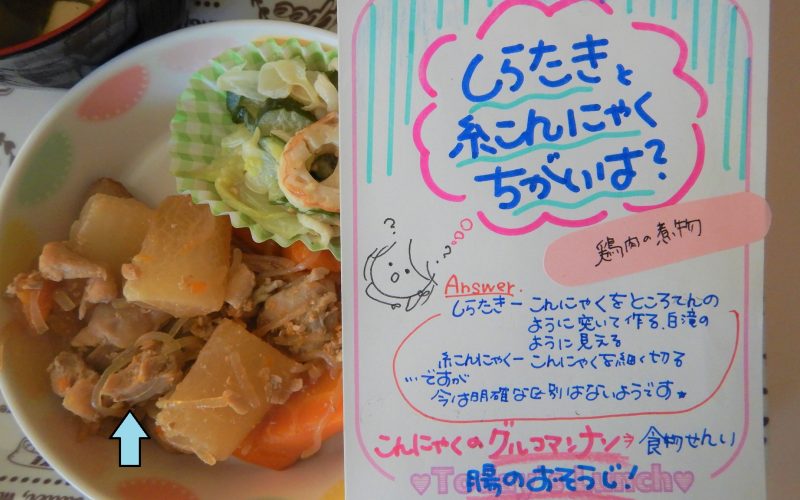 しらたきと
糸こんにゃく
ちがいは?
鶏肉の煮物
? ?
Answer.
しらたき ー こんにゃくをところてんの
ように突いて作る、白滝の
ように見える
糸こんにゃく ー こんにゃくを細く切る
…ですが
今は明確な区別はないようです
こんにゃくのグルコマンナン⇒食物せんい
腸のおそうじ!